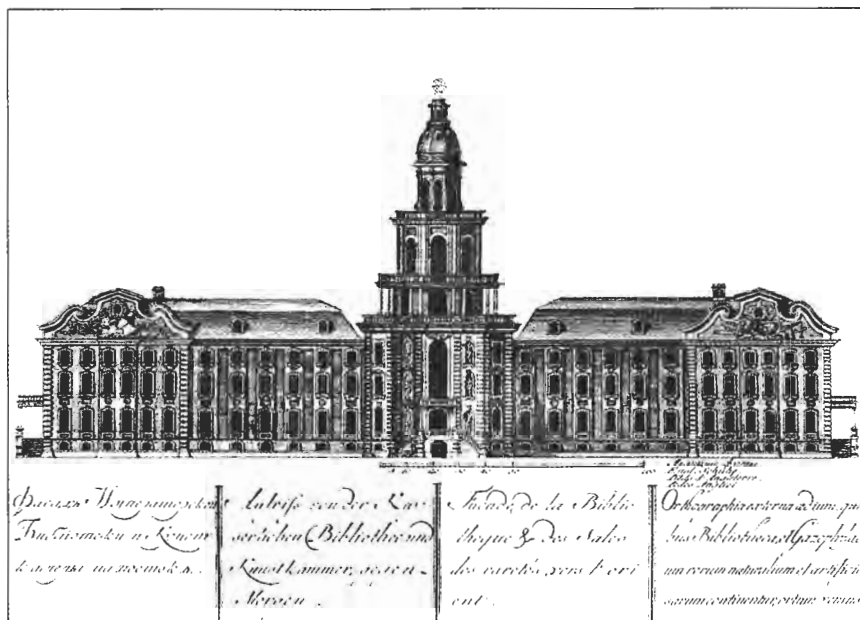 Фасадъ Императорской
Библиотеки и Кунст
каморы на востокъ.
Aufriss von der Kay
serlichen Bibliothec und
Kunstkammer, gegen
Morgen.
Façade de la Biblio
theque & des Sales
des raretés vers l'ori
ent.
Orthographia externa aedium, qui
bus Bibliotheca et Gazophylaci
um rerum naturalium et artifici
osarum continentur, ortum versus